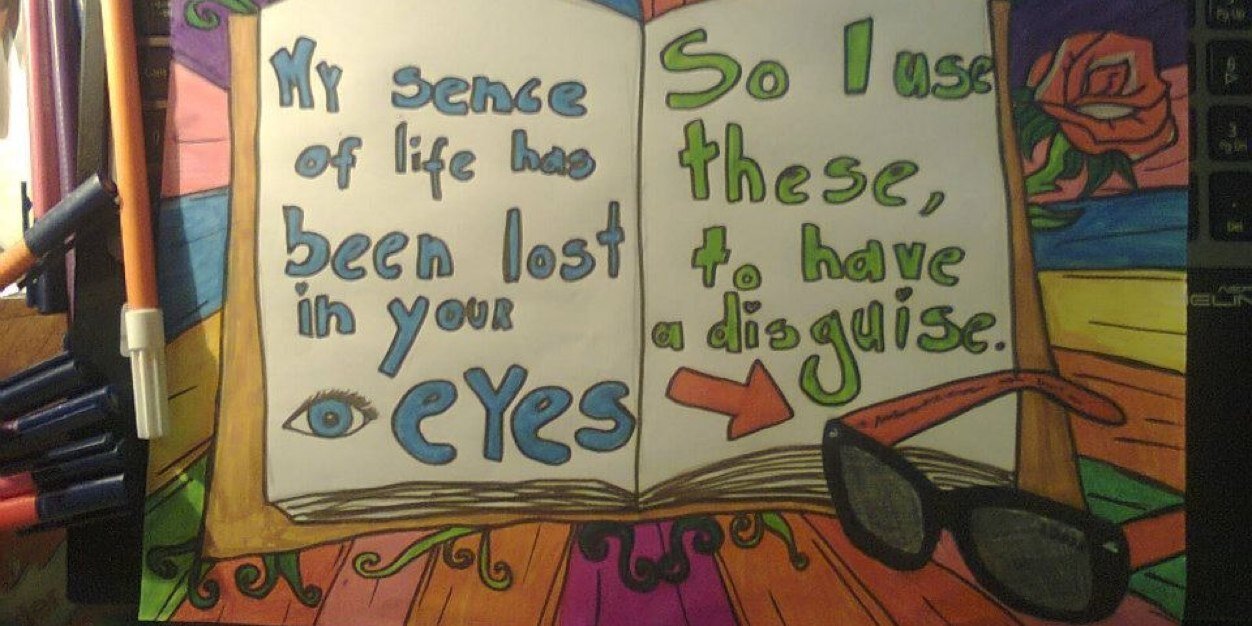 My sence
of life has
been lost
in your
eyes
So I use
these,
to have
a disguise.